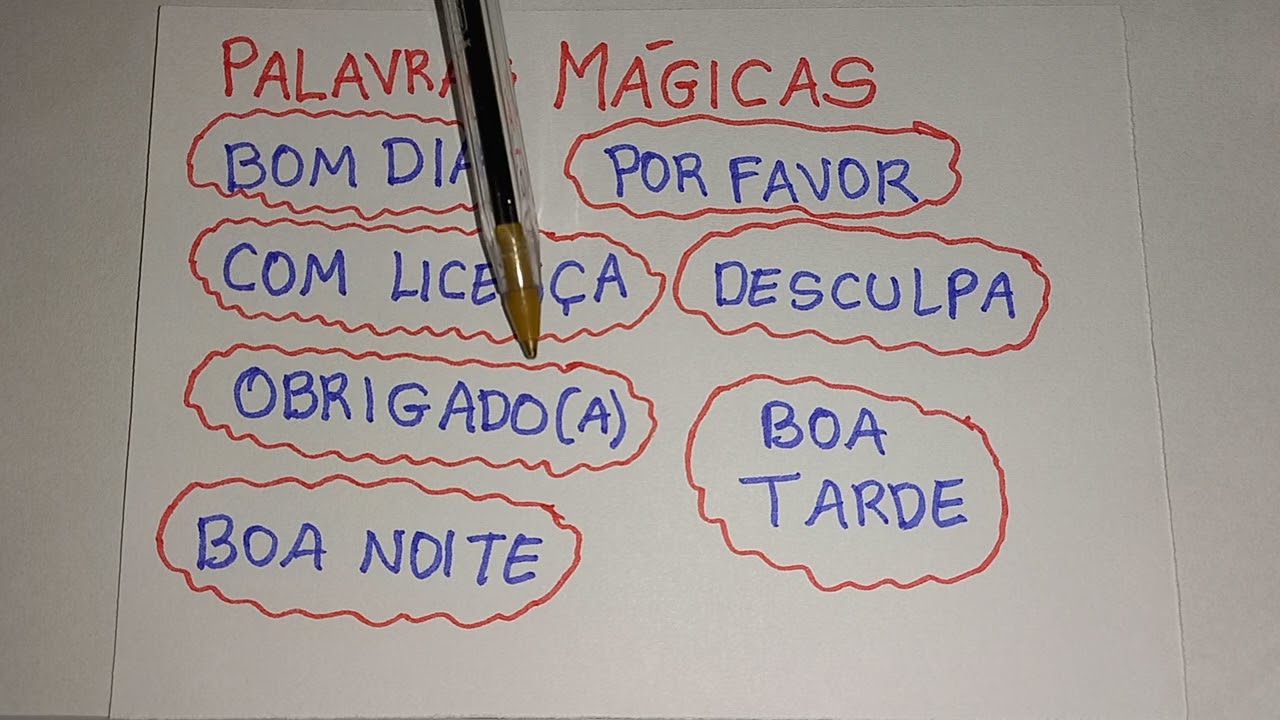 PALAVRAS MÁGICAS
BOM DIA
POR FAVOR
COM LICENÇA
DESCULPA
OBRIGADO(A)
BOA
TARDE
BOA NOITE